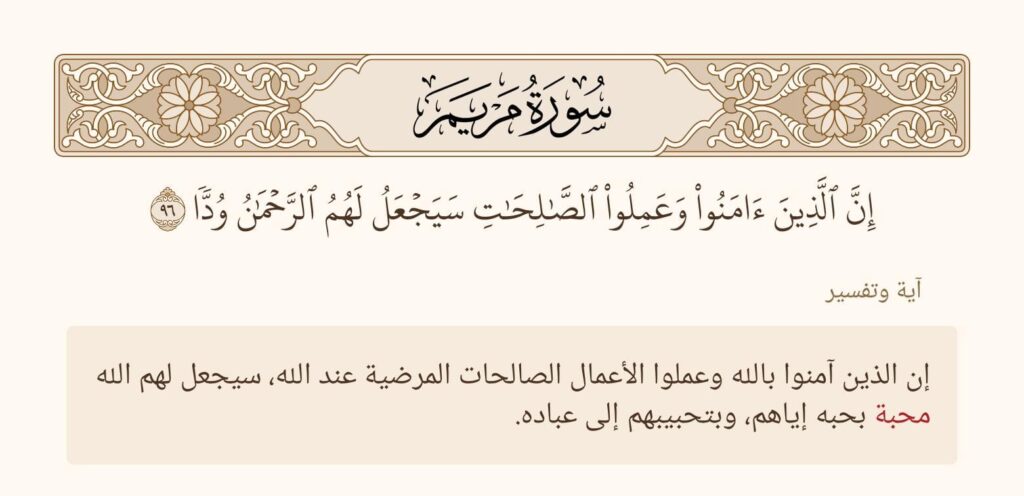 سُورَةُ مَرْيَمَ
إِنَّ ٱلَّذِينَ ءَامَنُوا۟ وَعَمِلُوا۟ ٱلصَّـٰلِحَـٰتِ سَيَجْعَلُ لَهُمُ ٱلرَّحْمَـٰنُ وُدًّا ٩٦
آية وتفسير
إن الذين آمنوا بالله وعملوا الأعمال الصالحات المرضية عند الله، سيجعل لهم الله
محبة بحبه إياهم، وبتحبيبهم إلى عباده.